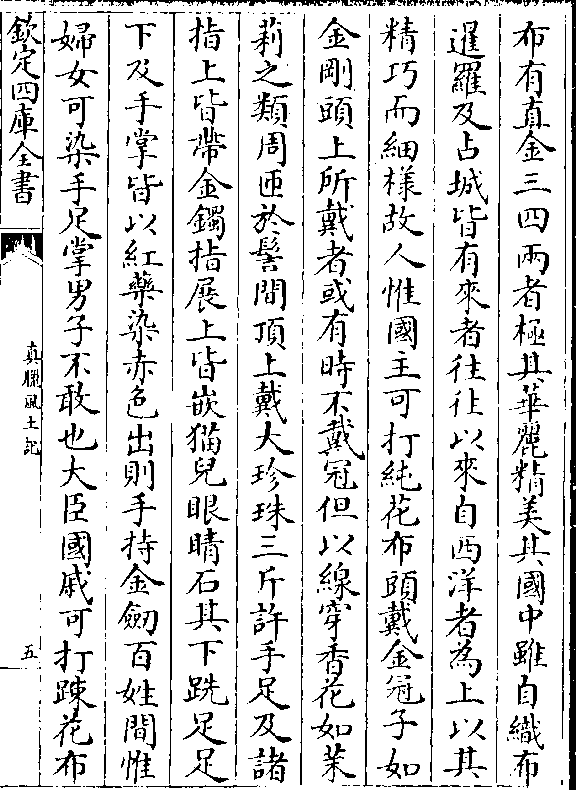 布有真金三四兩者極其華麗精美其國中雖自織布
暹羅及占城皆有來者往往以來自西洋者為上以其
精巧而細樣故人惟國主可打純花布頭戴金冠子如
金剛頭上所戴者或有時不戴冠但以線穿香花如茉
莉之類周匝於髻間頂上戴大珍珠三斤許手足及諸
指上皆帶金鐲指展上皆嵌猫兒眼睛石其下跣足足
下及手掌皆以紅藥染赤色出則手持金劒百姓間惟
婦女可染手足掌男子不敢也大臣國戚可打疎花布
欽定四庫全書
真臘風土記
五